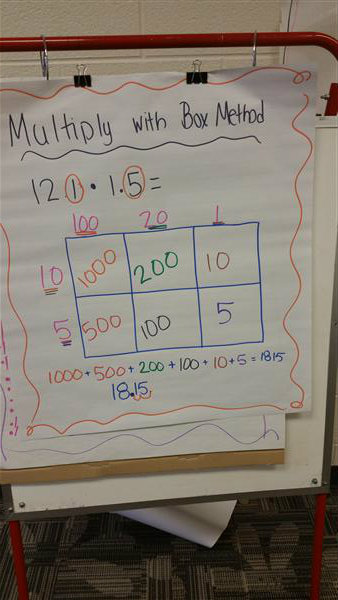 Multiply with Box Method
12.1 • 1.5 =
100 20 1
10 1000 200 10
5 500 100 5
1000 + 500 + 200 + 100 + 10 + 5 = 1815
18.15